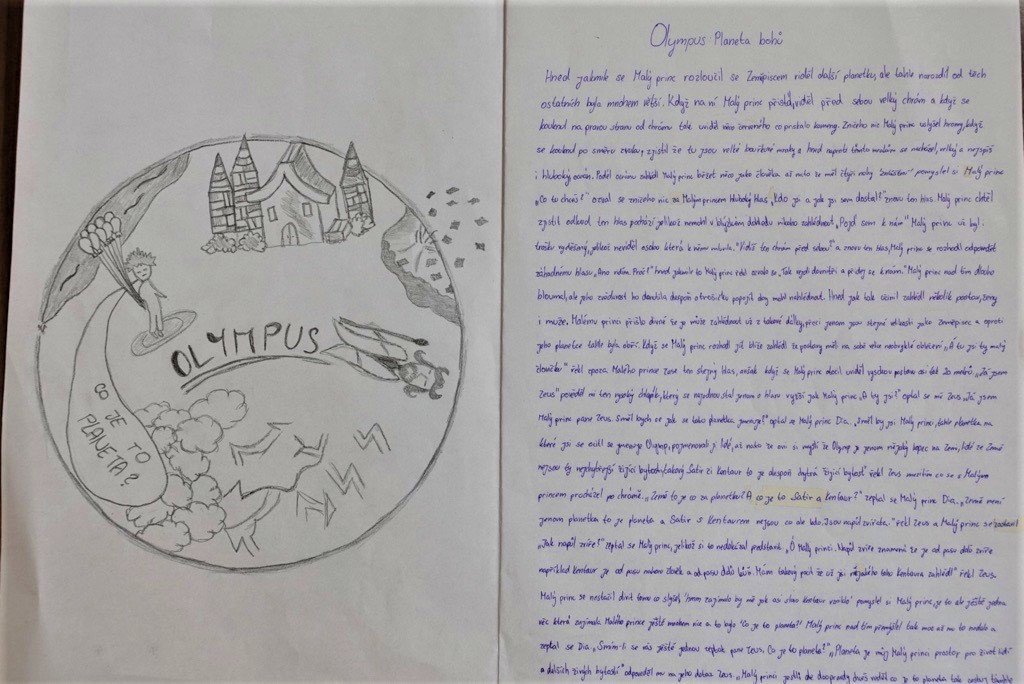 OLYMPUS
CO JE TO
PLANETA?
Olympus: Planeta bohů
Hned jakmile se Malý princ rozloučil se Zeměpiscem viděl další planetku, ale tahle narozdíl od těch
ostatních byla mnohem větší. Když na ní Malý princ přiletěl, viděl před sebou velký chrám a když se
kouknul na pravou stranu od chrámu tak uviděl něco červeného co pristalo kameny. Zničeho nic Malý princ uslyšel hromy, když
se kouknul po směru zvuku, zjistil že tu jsou velké bouřkové mraky a hned naproti těmto mrakům se nacházel, velký a nejspíš
i hluboký oceán. Podél oceánu zahlédl Malý princ běžet něco jako člověka až nato že měl čtyři nohy pomyslel si Malý princ
„Co to chceš?" ozval se zničeho nic za Malým princem hluboký hlas „kdo jsi a jak jsi sem dostal?" znovu ten hlas. Malý princ chtěl
zjistit odkud ten hlas pochází jelikož nemohl v blízkém dohledu nikoho zahlédnout. „Pojď sem k nám" Malý princ už byl
trošku vyděšený, jelikož neviděl osobu která k němu mluvila. "Vidíš ten chrám před sebou?" a znovu ten hlas, Malý princ se rozhodl odpovědět
záhadnému hlasu „Ano vidím. Proč?" hned jakmile to Malý princ řekl ozvalo se „Tak vejdi dovnitř a přidej se k nám." Malý princ nad tím dlouho
bloumal, ale jeho zvědavost ho donutila alespoň o trošičku popojít aby mohl nahlédnout. Ihned jak tak učinil zahlédl několik postav, ženy
i muže. Malému princi přišlo divné že je může zahlédnout už z takové dálky, přeci jenom jsou stejné velikosti jako Zeměpisec a oproti
jeho planetce tahle byla obří. Když se Malý princ rozhodl jít blíže zahlédl že postavy měli na sobě velice neobvyklé oblečení „A tu jsi ty malý
človíčku" řekl zpoza Malého prince zase ten stejný hlas, avšak když se Malý princ otočil uviděl vysokou postavu asi tak 20 metrů „Já jsem
Zeus" pověděl mi ten vysoký chlapík, který se najednou stal jenom o hlavu vyšší jak Malý princ „A ty jsi?" optal se mě Zeus. „Já jsem
Malý princ pane Zeus. Směl bych se jak se tato planetka jmenuje?" optal se Malý princ Dia. „Směl by jsi Malý princi, tahle planetka na
které jsi se ocitl se jmenuje Olymp, pojmenovali ji lidé, až nato že oni si myslí že Olymp je jenom nějaký kopec na Zemi, lidé ze Země
nejsou ty nejchytřejší žijící bytosti, takový Satir či Kentaur to je alespoň chytrá žijící bytost" řekl Zeus mezitím co se s Malým
princem procházel po chrámě. „Země to je co za planetku? A co je to Satir a Kentaur?" zeptal se Malý princ Dia. „Země není
jenom planetka to je planeta a Satir s Kentaurem nejsou co ale kdo. Jsou napůl zvířata." řekl Zeus a Malý princ se zastavil
„Jak napůl zvíře?" zeptal se Malý princ, jelikož si to nedokázal představit. „Ó Malý princi. Napůl zvíře znamená že je od pasu dolů zvíře
například Kentaur je od pasu nahoru člověk a od pasu dolů kůň. Mám takový pocit že už jsi nějakého toho Kentaura zahlédl" řekl Zeus.
Malý princ se nestačil divit tomu co slyšel, 'hmm zajímalo by mě jak asi takový Kentaur vznikl' pomyslel si Malý princ, je to ale ještě jedna
věc která zajímala Malého prince ještě mnohem více a to bylo 'co je to planeta?' Malý princ nad tím přemýšlel tak moc až mu to nedalo a
zeptal se Dia „Smím-li se vás ještě jednou zeptat pane Zeus. Co je to planeta?" „Planeta je můj Malý princi prostor pro život lidí
a dalších živých bytostí" odpověděl mu na jeho dotaz Zeus „Malý princi jestli ale doopravdy chceš vědět co je to planeta tak